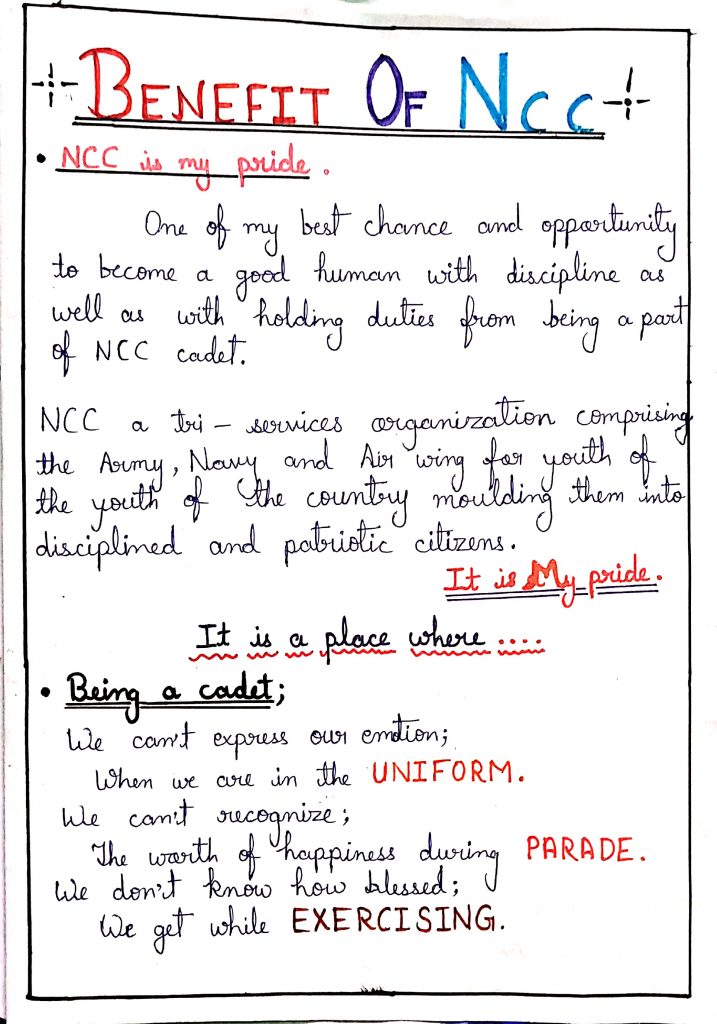 BENEFIT OF NCC
• NCC is my pride.
One of my best chance and opportunity
to become a good human with discipline as
well as with holding duties from being a part
of NCC cadet.
NCC a tri - services organization comprising
the Army, Navy and Air wing for youth of
the youth of the country moulding them into
disciplined and patriotic citizens.
It is My pride.
It is a place where ....
• Being a cadet;
We can't express our emotion;
When we are in the UNIFORM.
We can't recognize;
The worth of happiness during PARADE.
We don't know how blessed;
We get while EXERCISING.